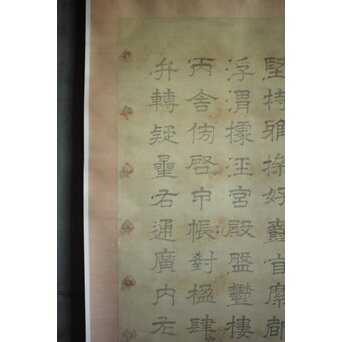 堅持雅操好爵自縻都
浮渭據涇宮殿盤鬱樓
丙舍傍啓甲帳對楹肆
弁轉疑星右通廣內左